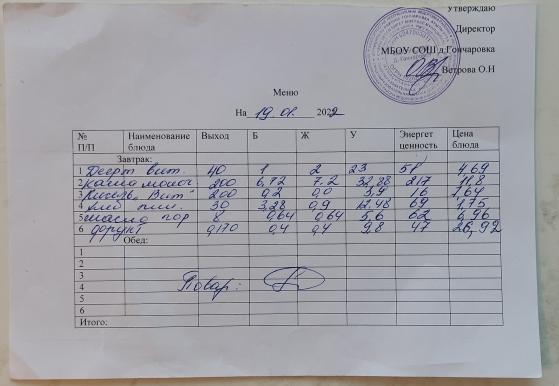 Утверждаю
Директор
МБОУ СОШ д.Гончаровка
Ветрова О.Н
Меню
На 19.01. 2022
№ П/П Наименование блюда Выход Б Ж У Энергет ценность Цена блюда
Завтрак:
1 Десерт вит. 40 1 2 23 58 4,69
2 Каша молоч. 200 6,12 7,2 32,28 217
3 Кисель "Вит" 200 0,2 0,0 3,9 16 1,64
4 хлеб пш. 30 3,28 0,9 12,48 69 1,75
5 масло пор 8 0,64 0,64 5,6 62 6,96
6 0,170 0,4 0,4 9,8 47 26,92
Обед:
1
2
3
4 Повар:
5
6
Итого: